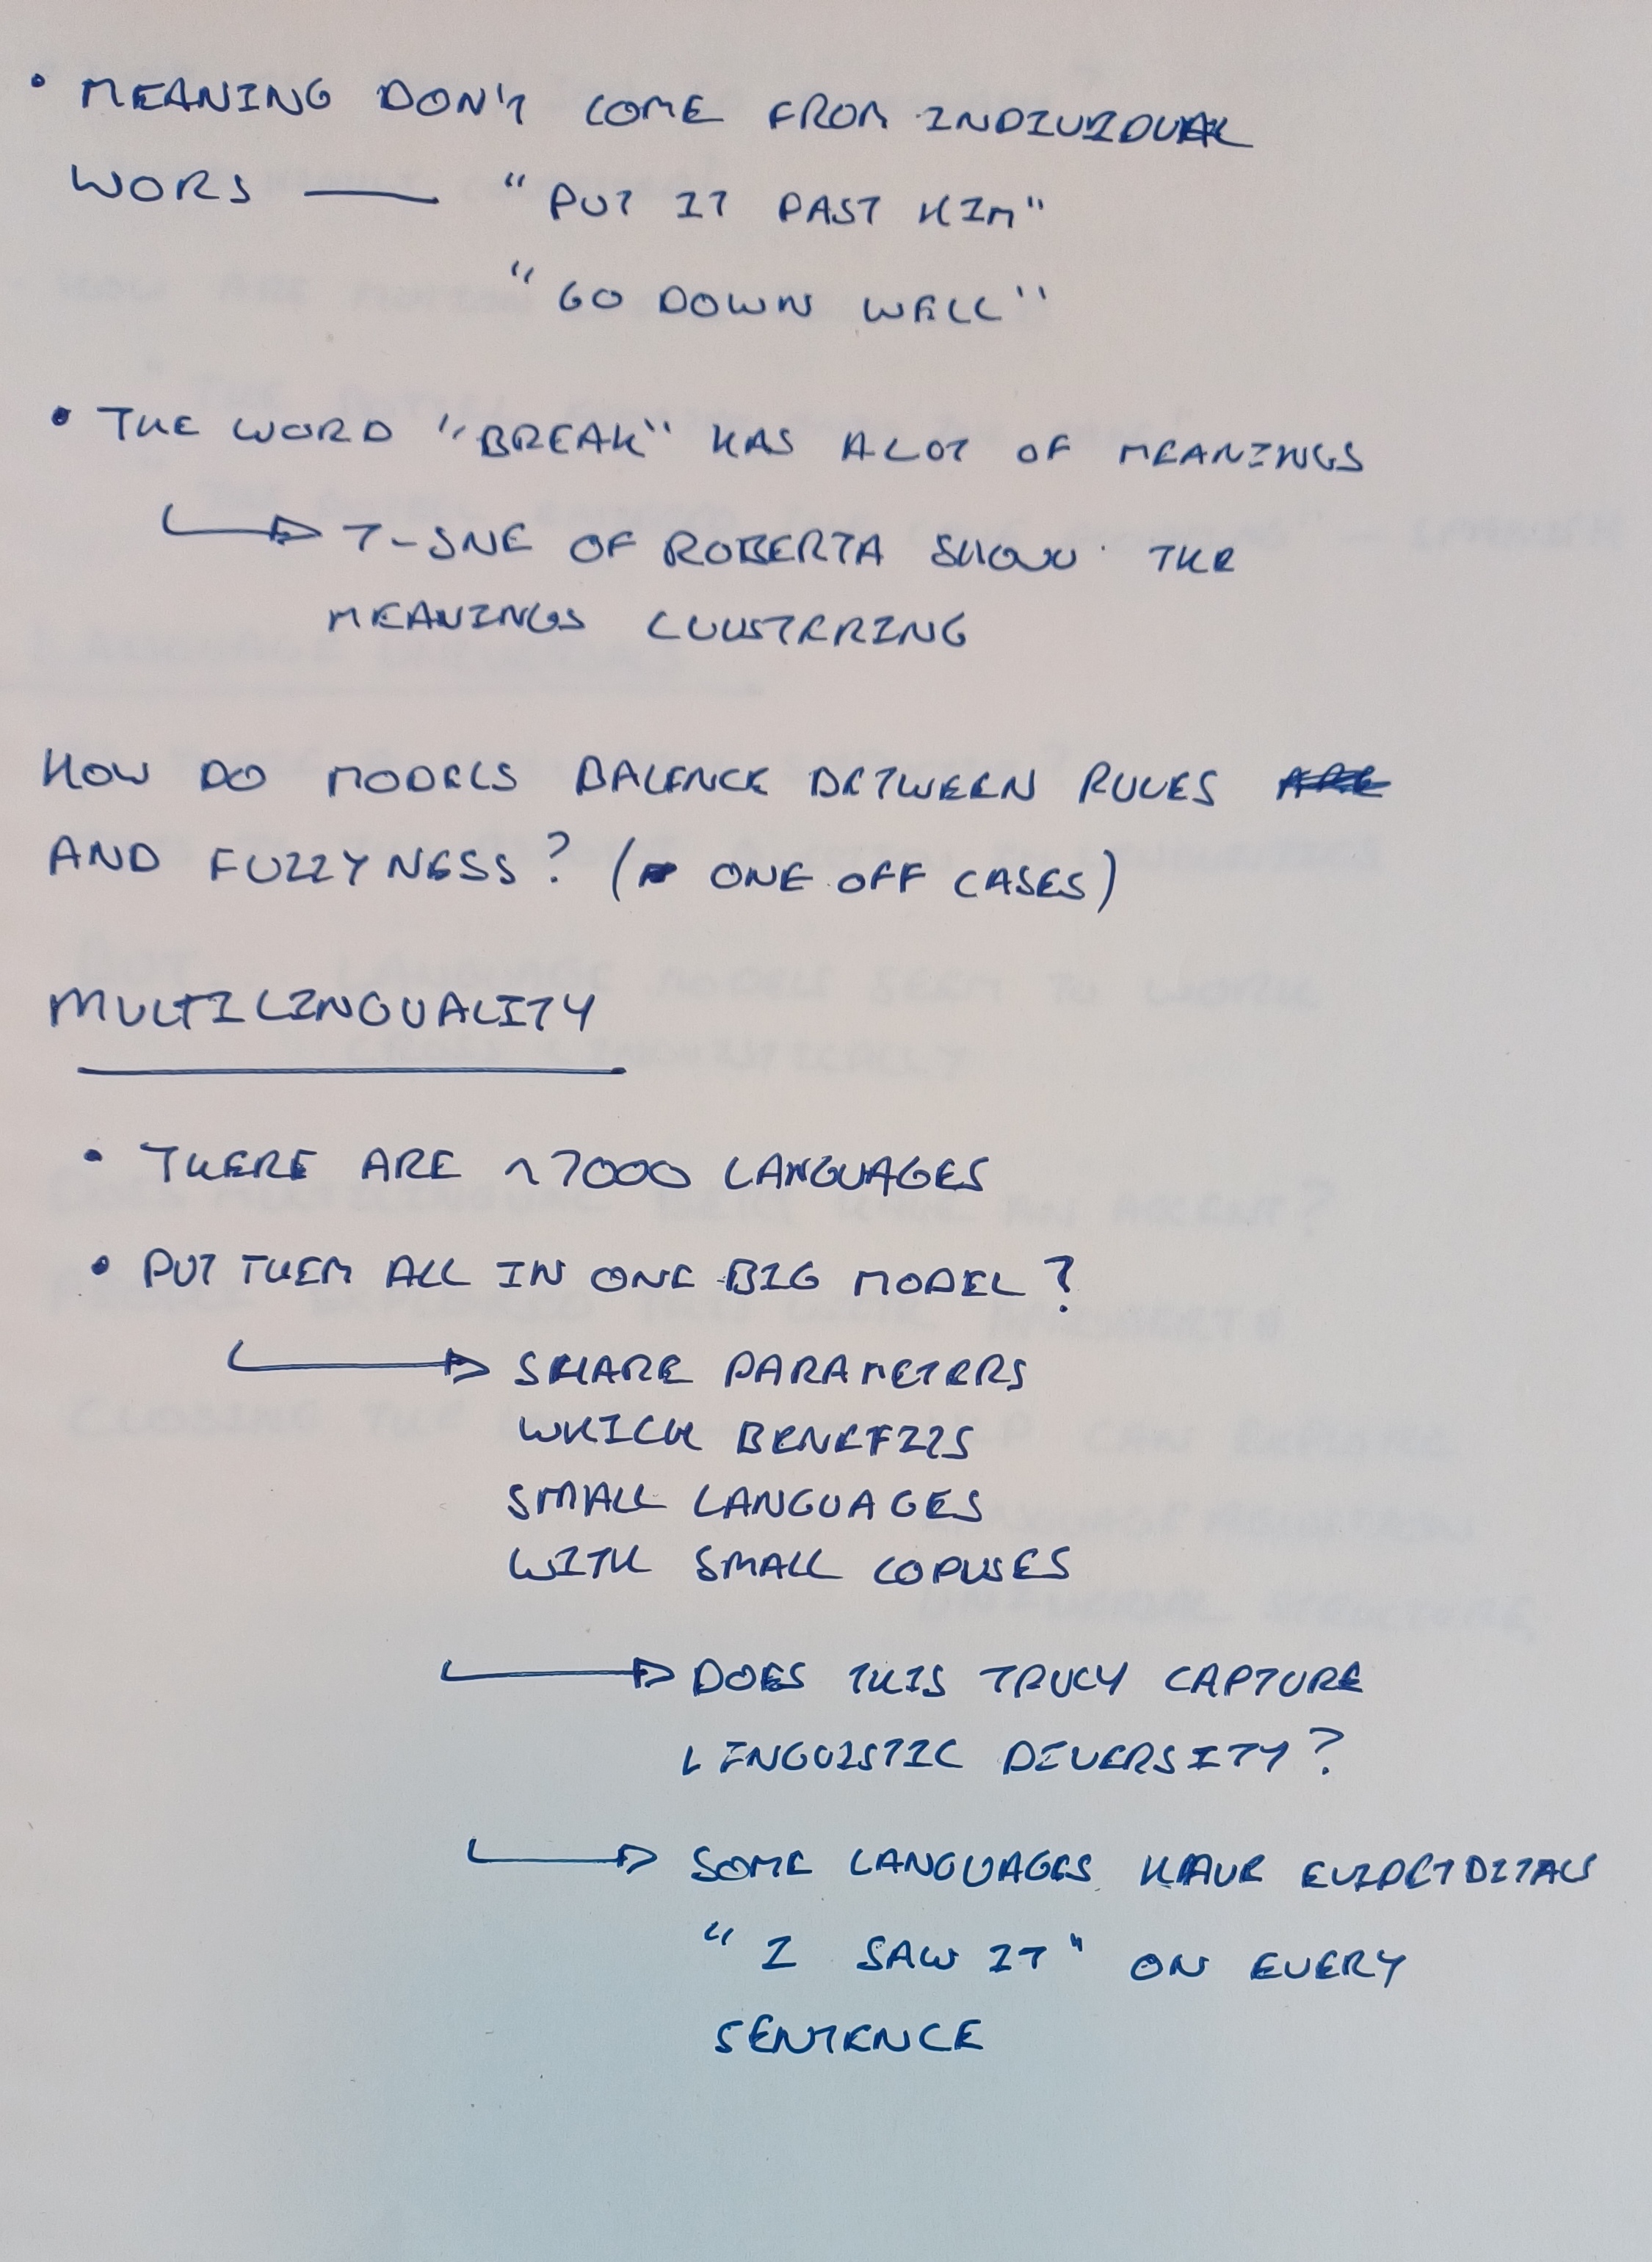 • MEANING DON'T COME FROM INDIVIDUAL
WORS — "PUT IT PAST HIM"
"GO DOWN WELL"
• THE WORD "BREAK" HAS A LOT OF MEANINGS
T-SNE OF ROBERTA SHOW THE
MEANINGS CLUSTERING
HOW DO MODELS BALENCE BETWEEN RULES
AND FUZZYNESS? (ONE OFF CASES)
MULTILINGUALITY
• THERE ARE ~7000 LANGUAGES
• PUT THEM ALL IN ONE BIG MODEL?
SHARE PARAMETERS
WHICH BENEFITS
SMALL LANGUAGES
WITH SMALL COPUSES
DOES THIS TRULY CAPTURE
LINGUISTIC DIVERSITY?
SOME LANGUAGES HAVE
"I SAW IT" ON EVERY
SENTENCE